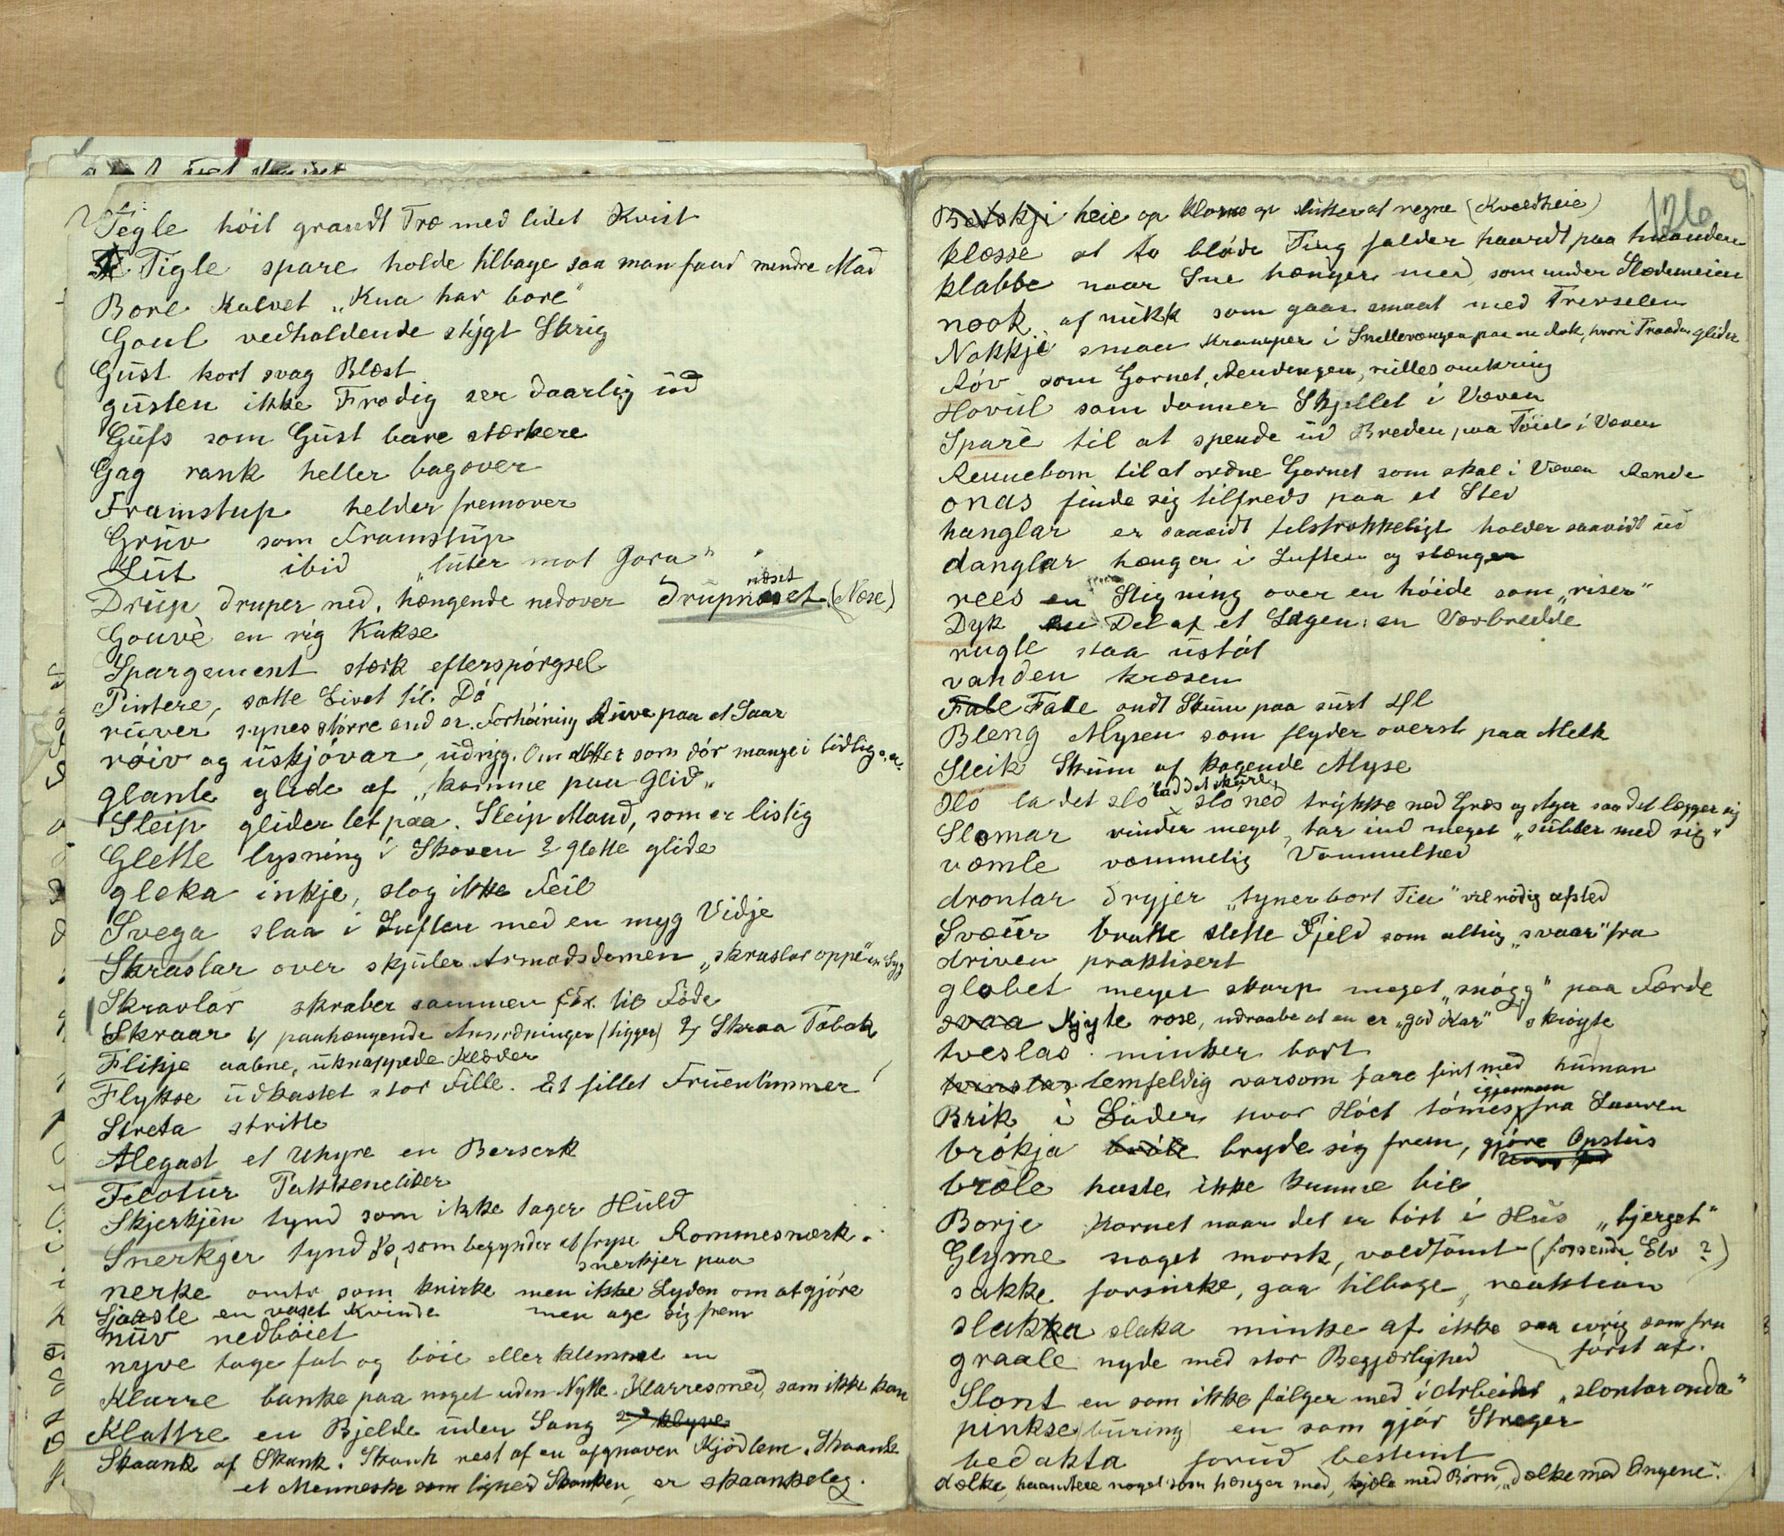 Tegle höit grandt Træ med lidet Kvist
Tigle spare holde tilbage saa man faar mindre Mad
Bore Kalvet „Kua har bore"
Goul vedholdende stýgt Skrig
Gust kort svag Blæst
gusten ikke Frodig ser daarlig ud
Gufs som Gust bare stærkere
Gag rank heller bagover
Framstup helder fremover
Gruv som Framstup
Lut ibid „luter mot Jora"
Drup druper ned, hængende nedover Drupnæset (Næse)
næset
Gouvè en rig Kakse
Spargement stærk efterspörgsel
Pintere, satte Livet til. Dö
ruver synes större end er. Forhöining Ruve paa et Saar
röiv og uskjövar, udrýg. Om det som dör mange i
glante glide af „komme paa Glid„
Sleip glider let paa. Sleip Mand, som er listig
Glette lysning i Skoven 2 glette glide
gleka inkje, slog ikke Feil
Svega slaa i Luften med en myg Vidje
Skraslar over skjuler Armodsdomen „skraslar oppe" en Syg
Skravlar skraber sammen f Ex. til Föde
Skraar 1/ paahængende Anordninger (ligger) 2/ Skraa Tobak
Flikje aabne, uknappede Klæder
Flykse udkastet stor Fille. Et fillet Fruentimmer
Streta stritte
Alegast et Uhyre en Berserk
Filotur Pakkenelliker
Skjerkjen tynd som ikke tager Huld
Snerkjer tynd Js, som begynder at fryse Rommesnærk.
snerkjer paa
nerke omtr som knirke men ikke Lyden om at gjöre
Sjaasle en vaset Kvinde men age sig frem
nuv nedböiet
nyve tage fat og böie eller klemme en
Klarre banke paa noget uden Nytte. Klarresmed, som ikke kan
Klattre en Bjelde uden Sang 2/ klyve
Skaank af Skank. Skank rest af en afgnaven Kjödlem. Skaank
et Menneske som ligner Skanken, er skaankeleg.
126
Betskji heie op klarne op slutter at regne (Kveldheie)
klæsse at to blöde Ting falder haardt paa hinanden
klabbe naar Sne hænger med, som under Slædemeien
nook af nukk som gaar smaat med Trevselen
Nakkji smaa Kramper i Snellevængen paa en Rok, hvori Traaden glider
Röv som Garnet, Rendingen, rulles omkring
Hovul som danner Skjellet i Væven
Sparè til at spende ud Breden paa Töiet i Væven
Rennebom til at ordne Garnet som skal i Væven Rende
onas finde sig tilfreds paa et Sted
hanglar er saavidt tilstrækkeligt holder saavidt ud
danglar hænger i Luften og slænger
rees en Stigning over en höide som „riser"
Dyk en Del af et Lagen: en Værbredde
rugle staa ustöt
vanden kræsen
Fale Fale ondt Skum paa surt Öl
Bleng Mysen som flyder overst paa Melk
Sleik Skum af kogende Myse
slö la det slö slö ned trýkke ned Græs og Ager saa det lægger sig
Slomar vinder meget, tar ind meget „subler med sig"
væmle væmmelig Vammelhed
drontar dryjer „tyner bort Tia" vil nödig afsted
Svæur bratte slette Fjeld som alting „svaar" fra
driven praktisert
globet meget skarp meget „snögg" paa Færde
svaa Kjyte rose, udraabe at en er „god Kar" skrögte
tveslas minker bort
tvinslar lemfeldig varsom fare fint med human
igjennem
Brik i Läder hvor Höet tömes fra Lauven
brökja bröle bryde sig frem, gjöre Opstus
bræle haste ikke kunne bie
Borje Kornet naar det er tört i Hus „bjerget"
Glyme noget morsk, voldsomt (fossende Elv ?)
sakke forsinke, gaa tilbage, reaktion
slakka slaka minke af ikke saa ivrig som fra
först af.
graale nyde med stor Begjærlighed
Slont en som ikke fölger med i Arbeidet „slontar onda"
pinkse (buring) en som gjör Streger
bedakta forud bestemt
dælke, haandtere noget som hænger med, kjæle med Börn, „dælke med Ongene".